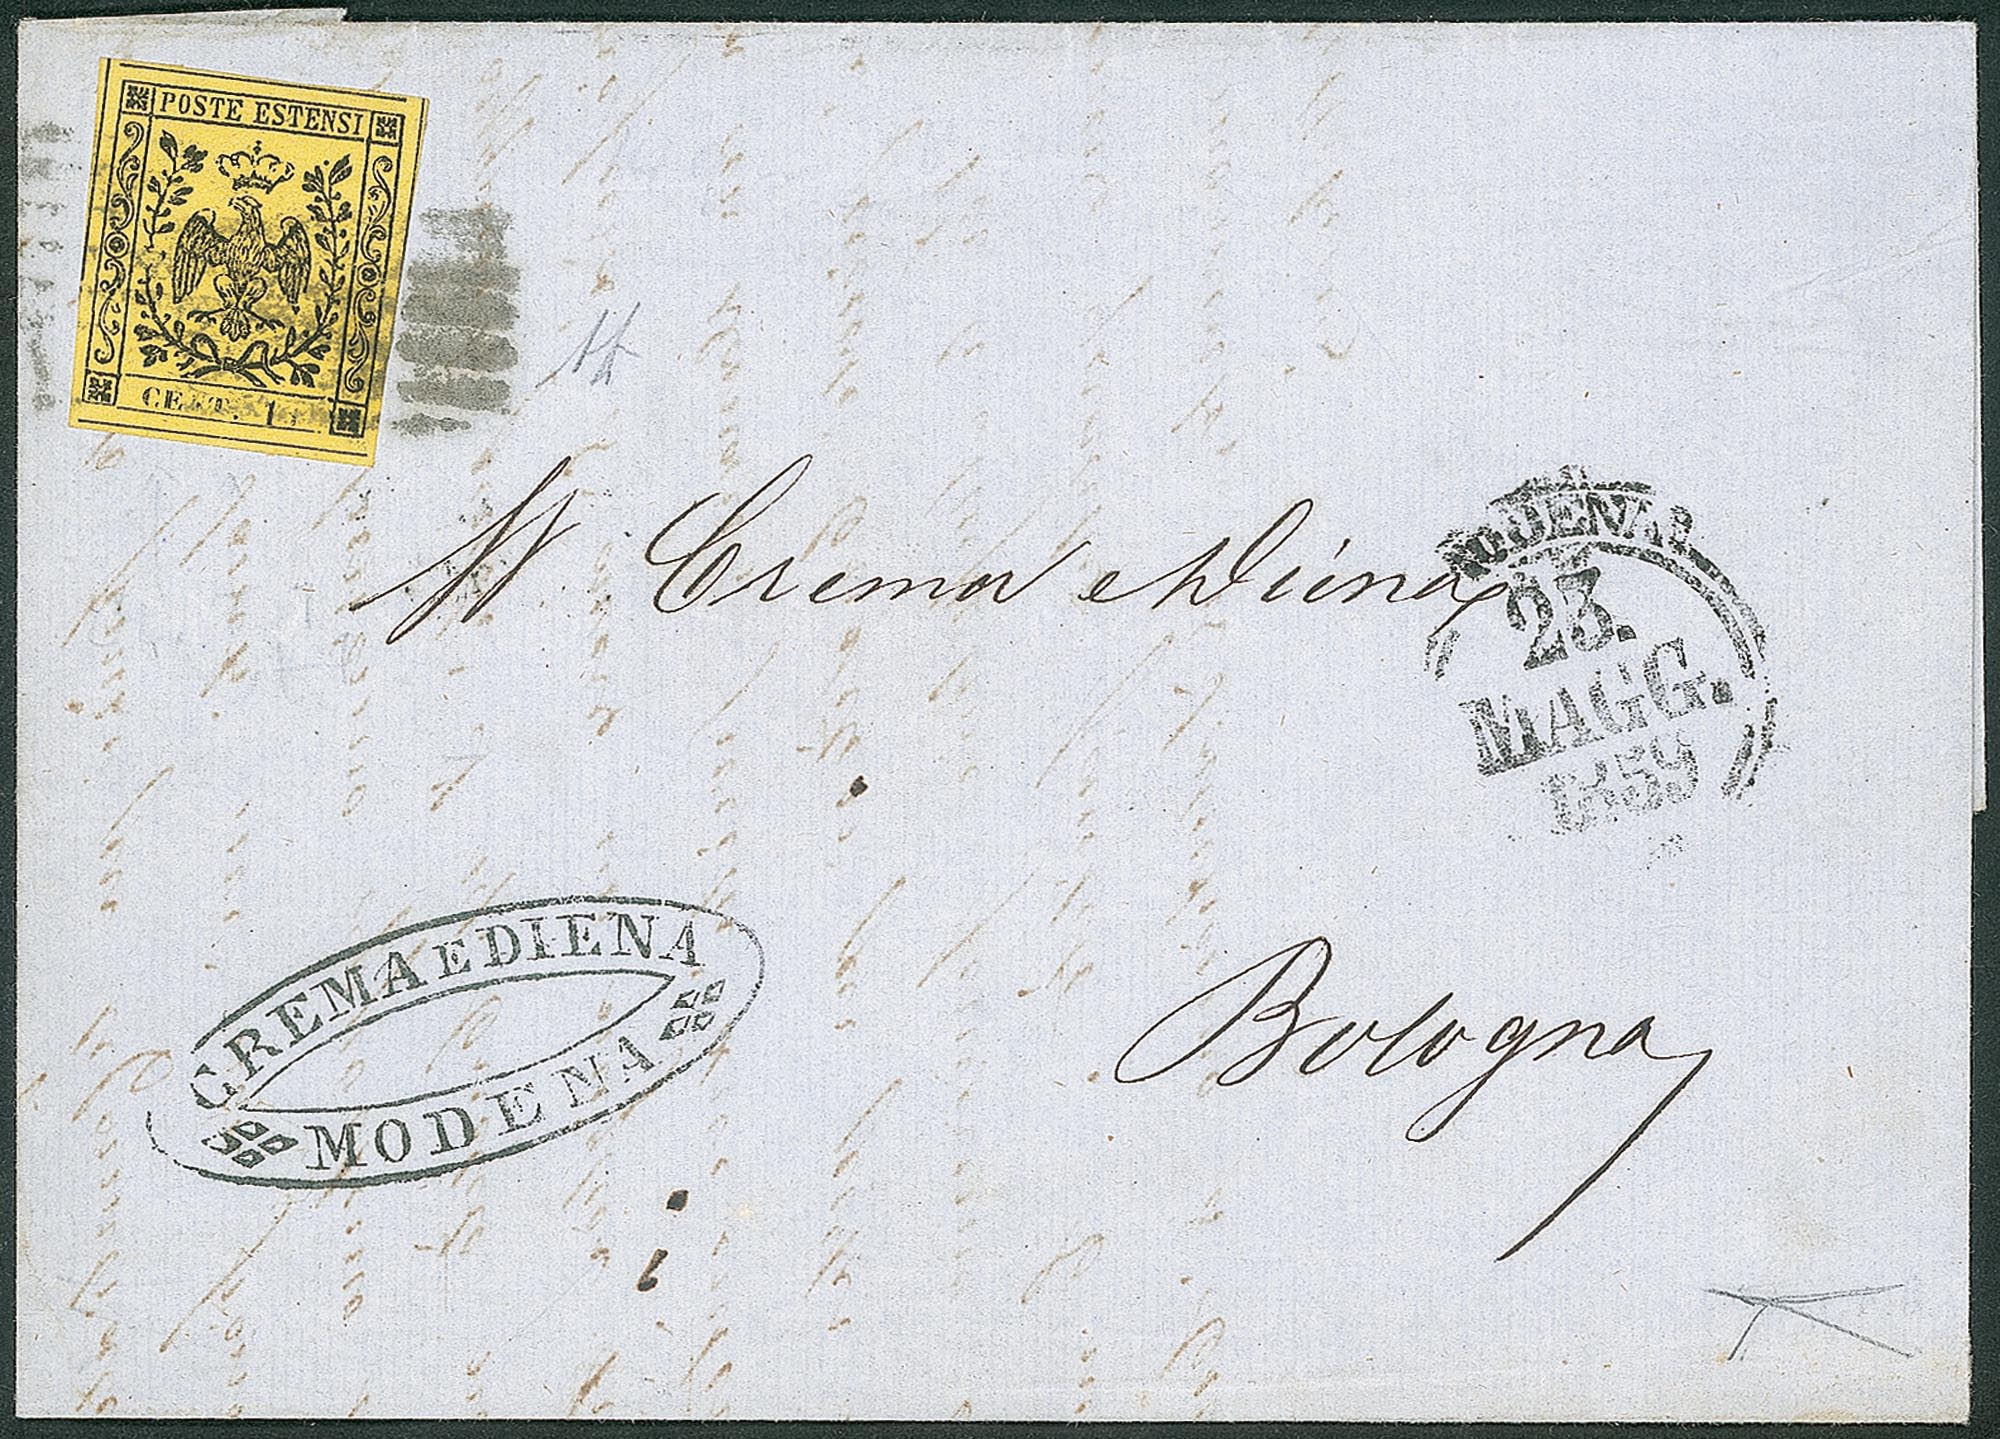 POSTE ESTENSI
CENT. 1
Crema e Diena
MODENA
23.
MAGG.
1859
CREMA E DIENA
MODENA
Bologna